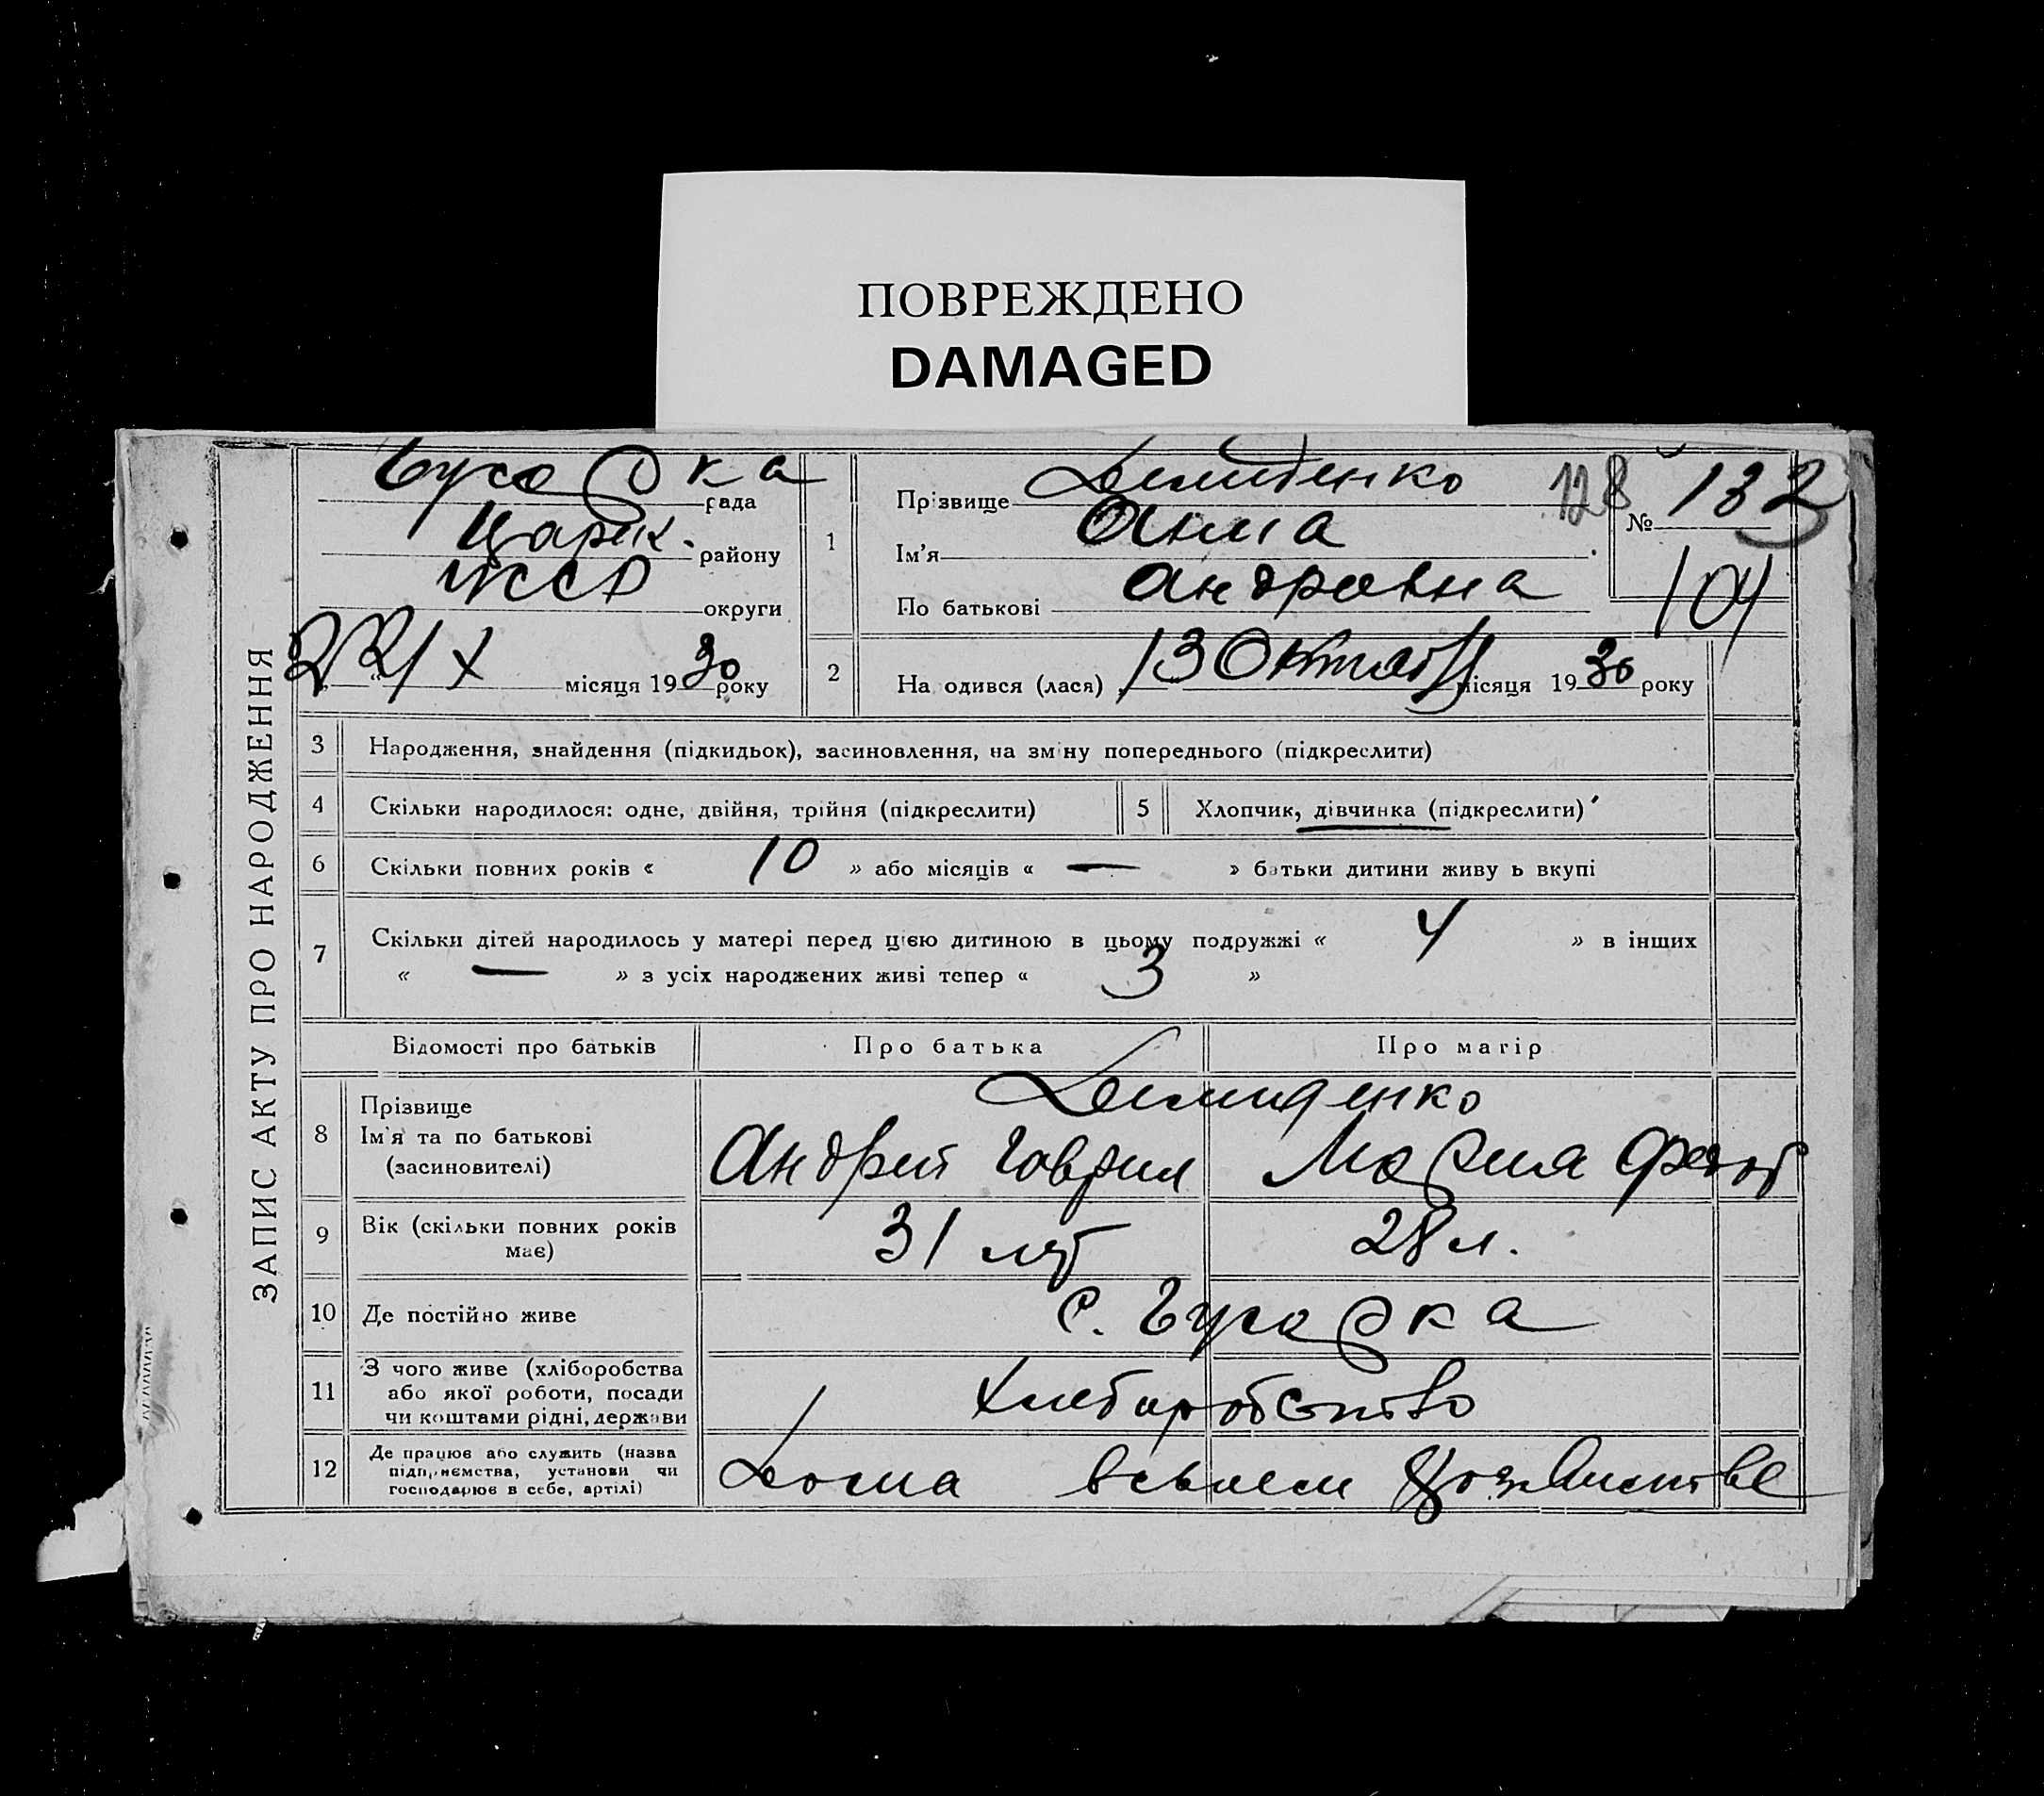 ПОВРЕЖДЕНО
DAMAGED
ЗАПИС АКТУ ПРО НАРОДЖЕННЯ
рада
району
округи
22/X місяця 1930 року
1
Прізвище Демиденко
Ім'я Анна
По батькові Андреевна
128
№ 132
104
2
Народився (лася) 13 Октяб місяця 1930 року
3 Народження, знайдення (підкидьок), засиновлення, на зміну попереднього (підкреслити)
4 Скільки народилося: одне, двійня, трійня (підкреслити)
5 Хлопчик, дівчинка (підкреслити)
6 Скільки повних років « 10 » або місяців « — » батьки дитини живуть вкупі
7 Скільки дітей народилось у матері перед цією дитиною в цьому подружжі « 4 » в інших
« — » з усіх народжених живі тепер « 3 »
Відомості про батьків Про батька Про матір
8 Прізвище
Ім'я та по батькові
(засиновителі)
Демиденко
Андрей Гаврил Мария Федот
9 Вік (скільки повних років
має)
31 лет 28 л.
10 Де постійно живе с.
11 З чого живе (хліборобства
або якої роботи, посади
чи коштами рідні, держави
Хлеборобство
12 Де працює або служить (назва
підприємства, установи чи
господарює в себе, артілі)
Дома в своем Хозяйстве